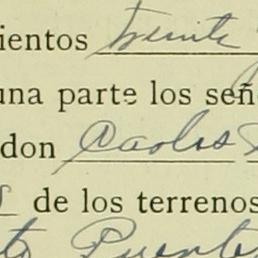 ientos treinta
una parte los señ
don Carlos
de los terrenos
Puente